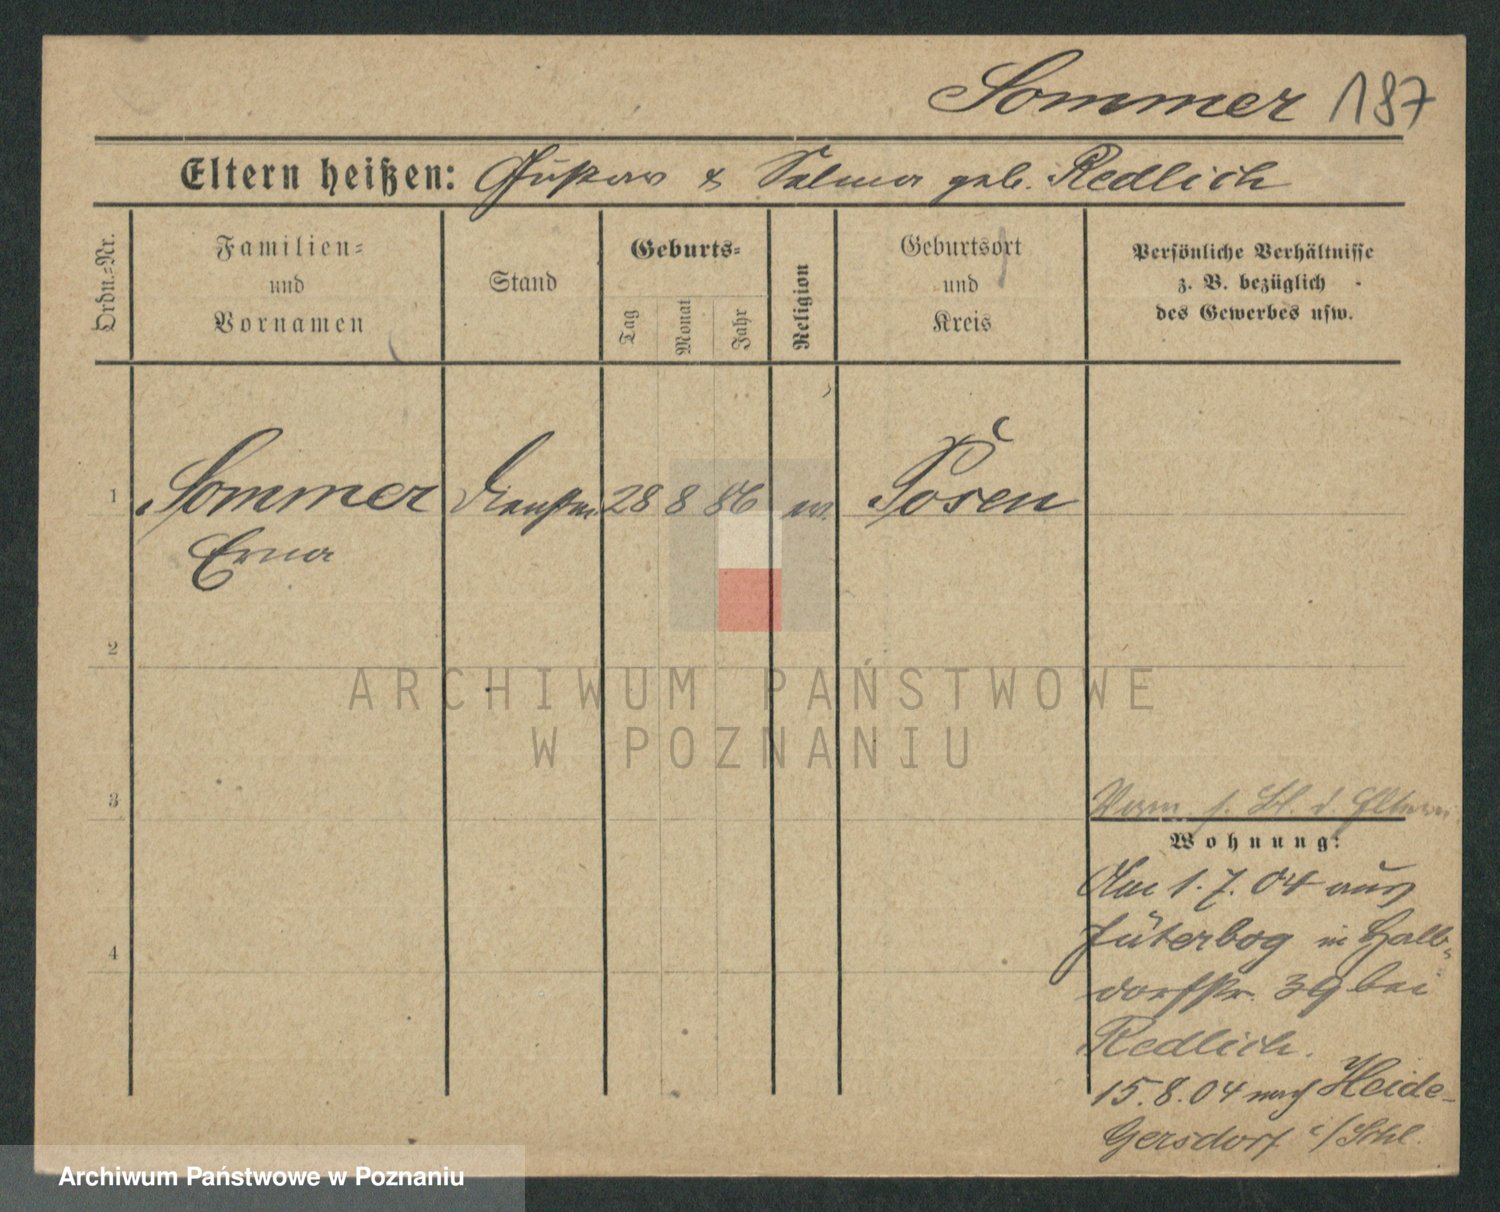 Sommer 187
Eltern heißen: Gustav & Selma geb. Redlich
Ordn.=Nr.
Familien=
und
Vornamen
Stand
Geburts=
Tag
Monat
Jahr
Religion
Geburtsort
und
Kreis
Persönliche Verhältnisse
z. B. bezüglich
des Gewerbes usw.
1 Sommer 28 8 86 ev. Posen
Erna
2
ARCHIWUM PAŃSTWOWE
W POZNANIU
3
d. Eltern
Wohnung:
4
Am 1.7.04 aus
Jüterbog in Halb-
dorfstr. 39 bei
Redlich.
15.8.04 nach Heide-
Gersdorf i/Schl.
Archiwum Państwowe w Poznaniu